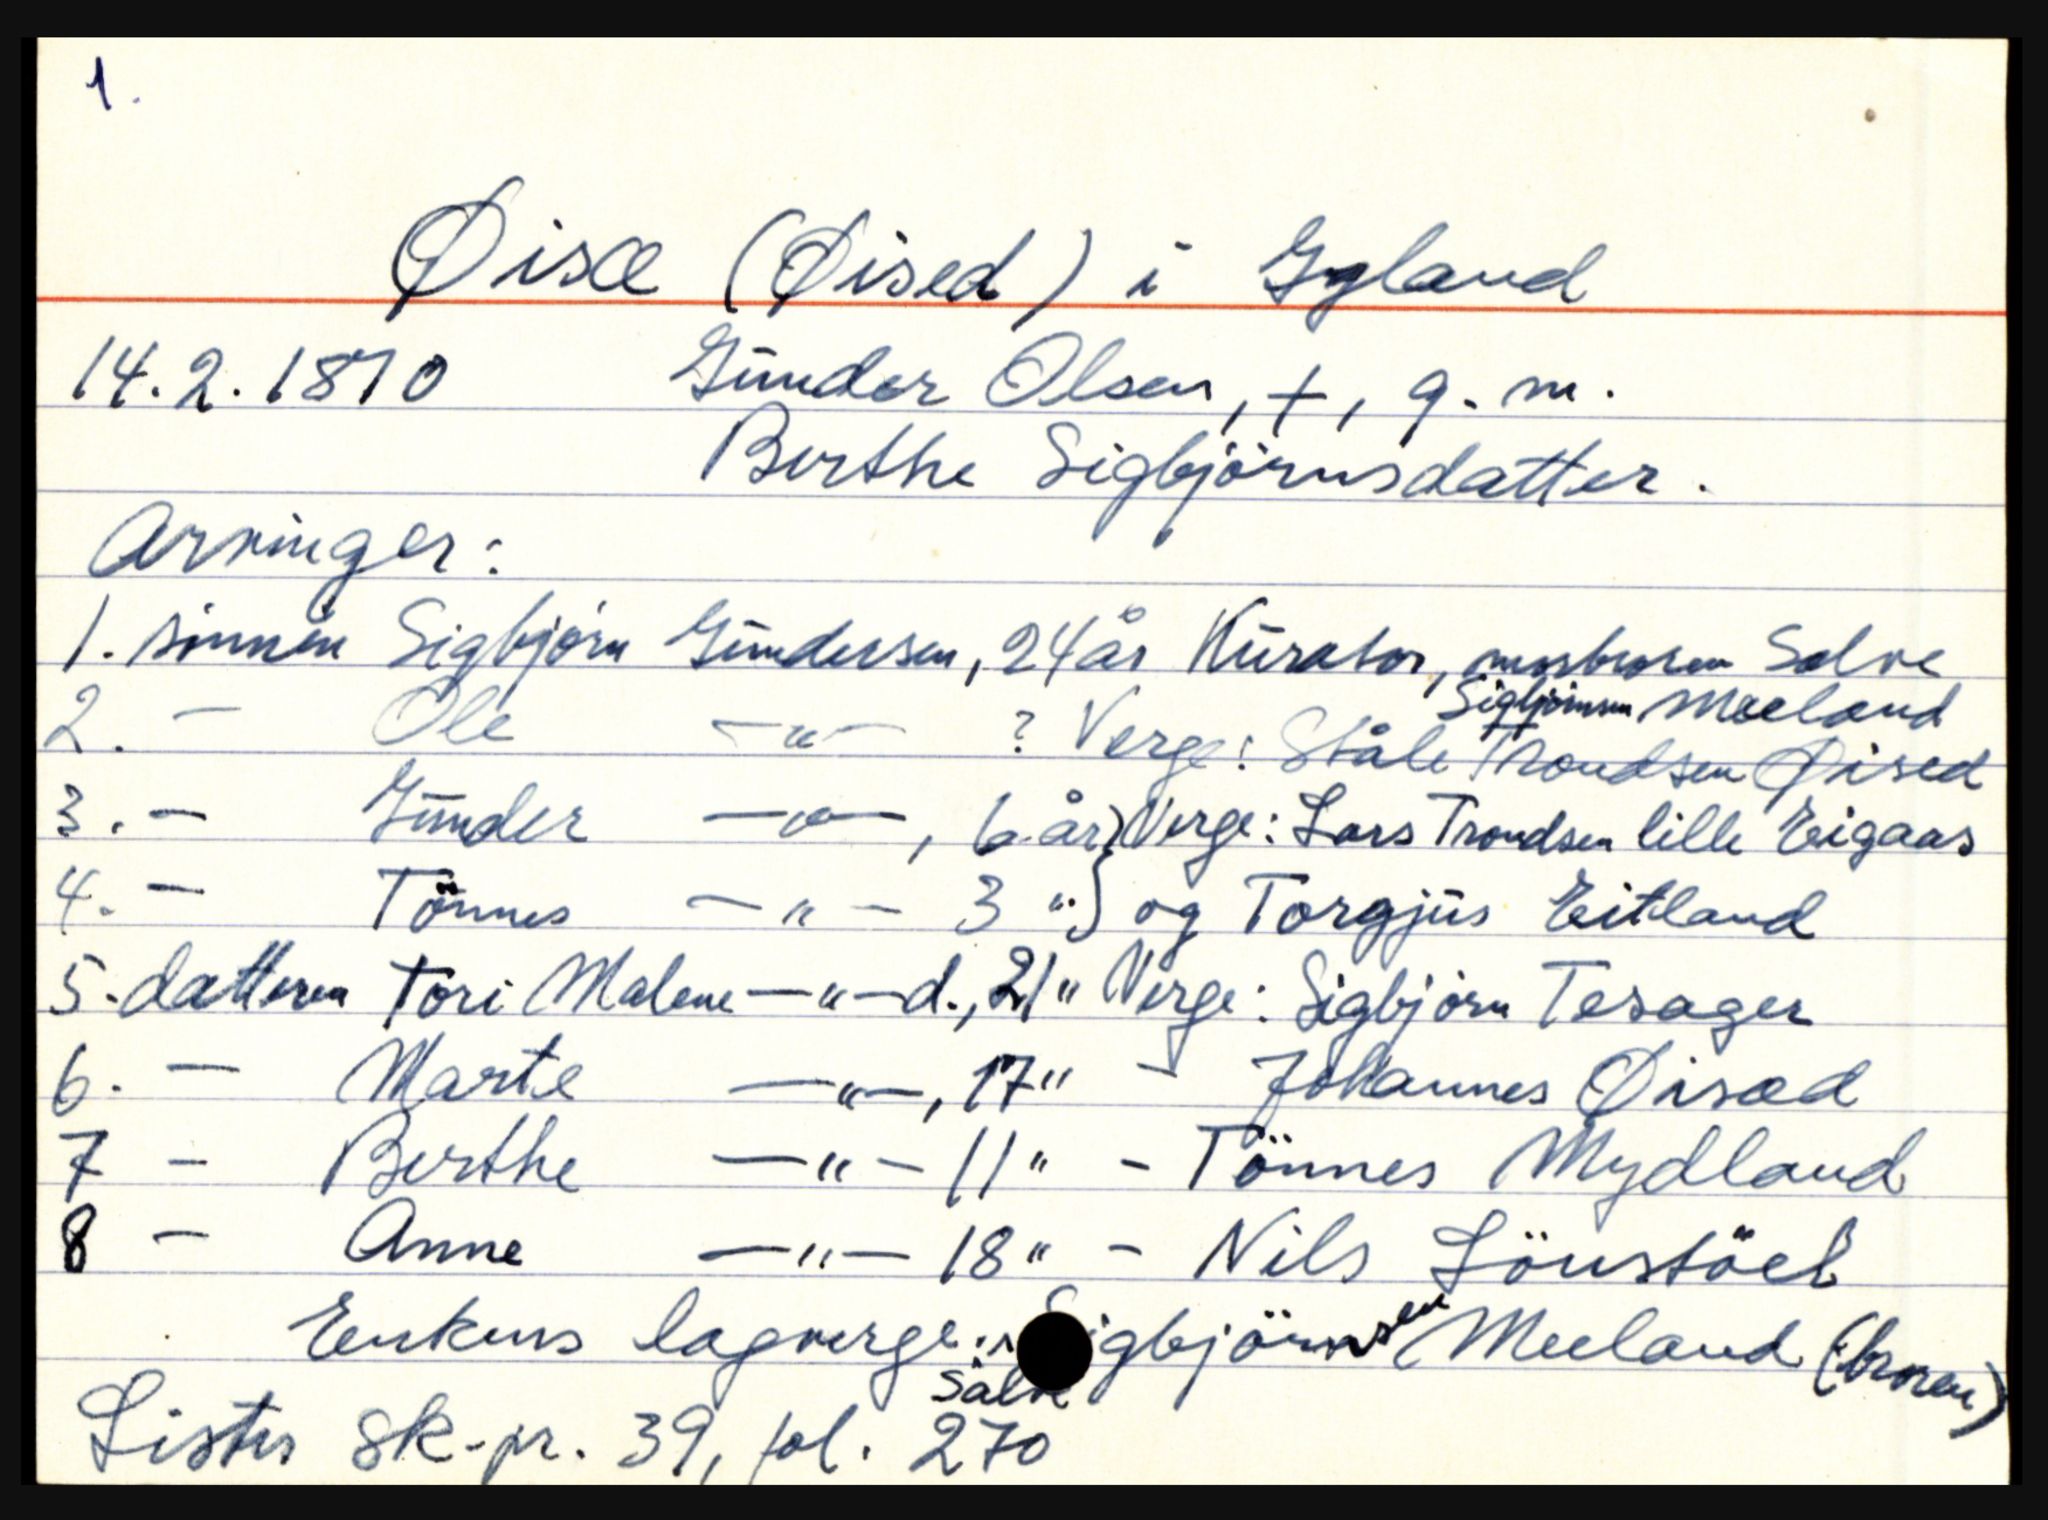 1.
Øisæ (Øised) i Gyland
14.2.1810 Gunder Olsen, +, g. m.
Berthe Sigbjörnsdatter.
Arvinger:
1. sönnen Sigbjørn Gundersen, 24 år Kurator, morbroren Salve
Sigbjörnsen Meeland
2. — Ole —"— ? Verge: Ståle Trondsen Øised
3. — Gunder —"—, 6 år } Verge: Lars Trondsen lille Eigaas
4. — Tönnes —"— 3 " } og Torgjus Eitland
5. datteren Tori Malene —"—d., 21 " Verge: Sigbjørn Tesager
6. — Marte —"—, 17 " - Johannes Øisæd
7 — Berthe —"— 11 " - Tönnes Mydland
8 — Anne —"— 18 " - Nils Lönstöel
Enkens lagverge: Sigbjörnsen Meeland (broren)
Salve
Lister sk-pr. 39, fol. 270